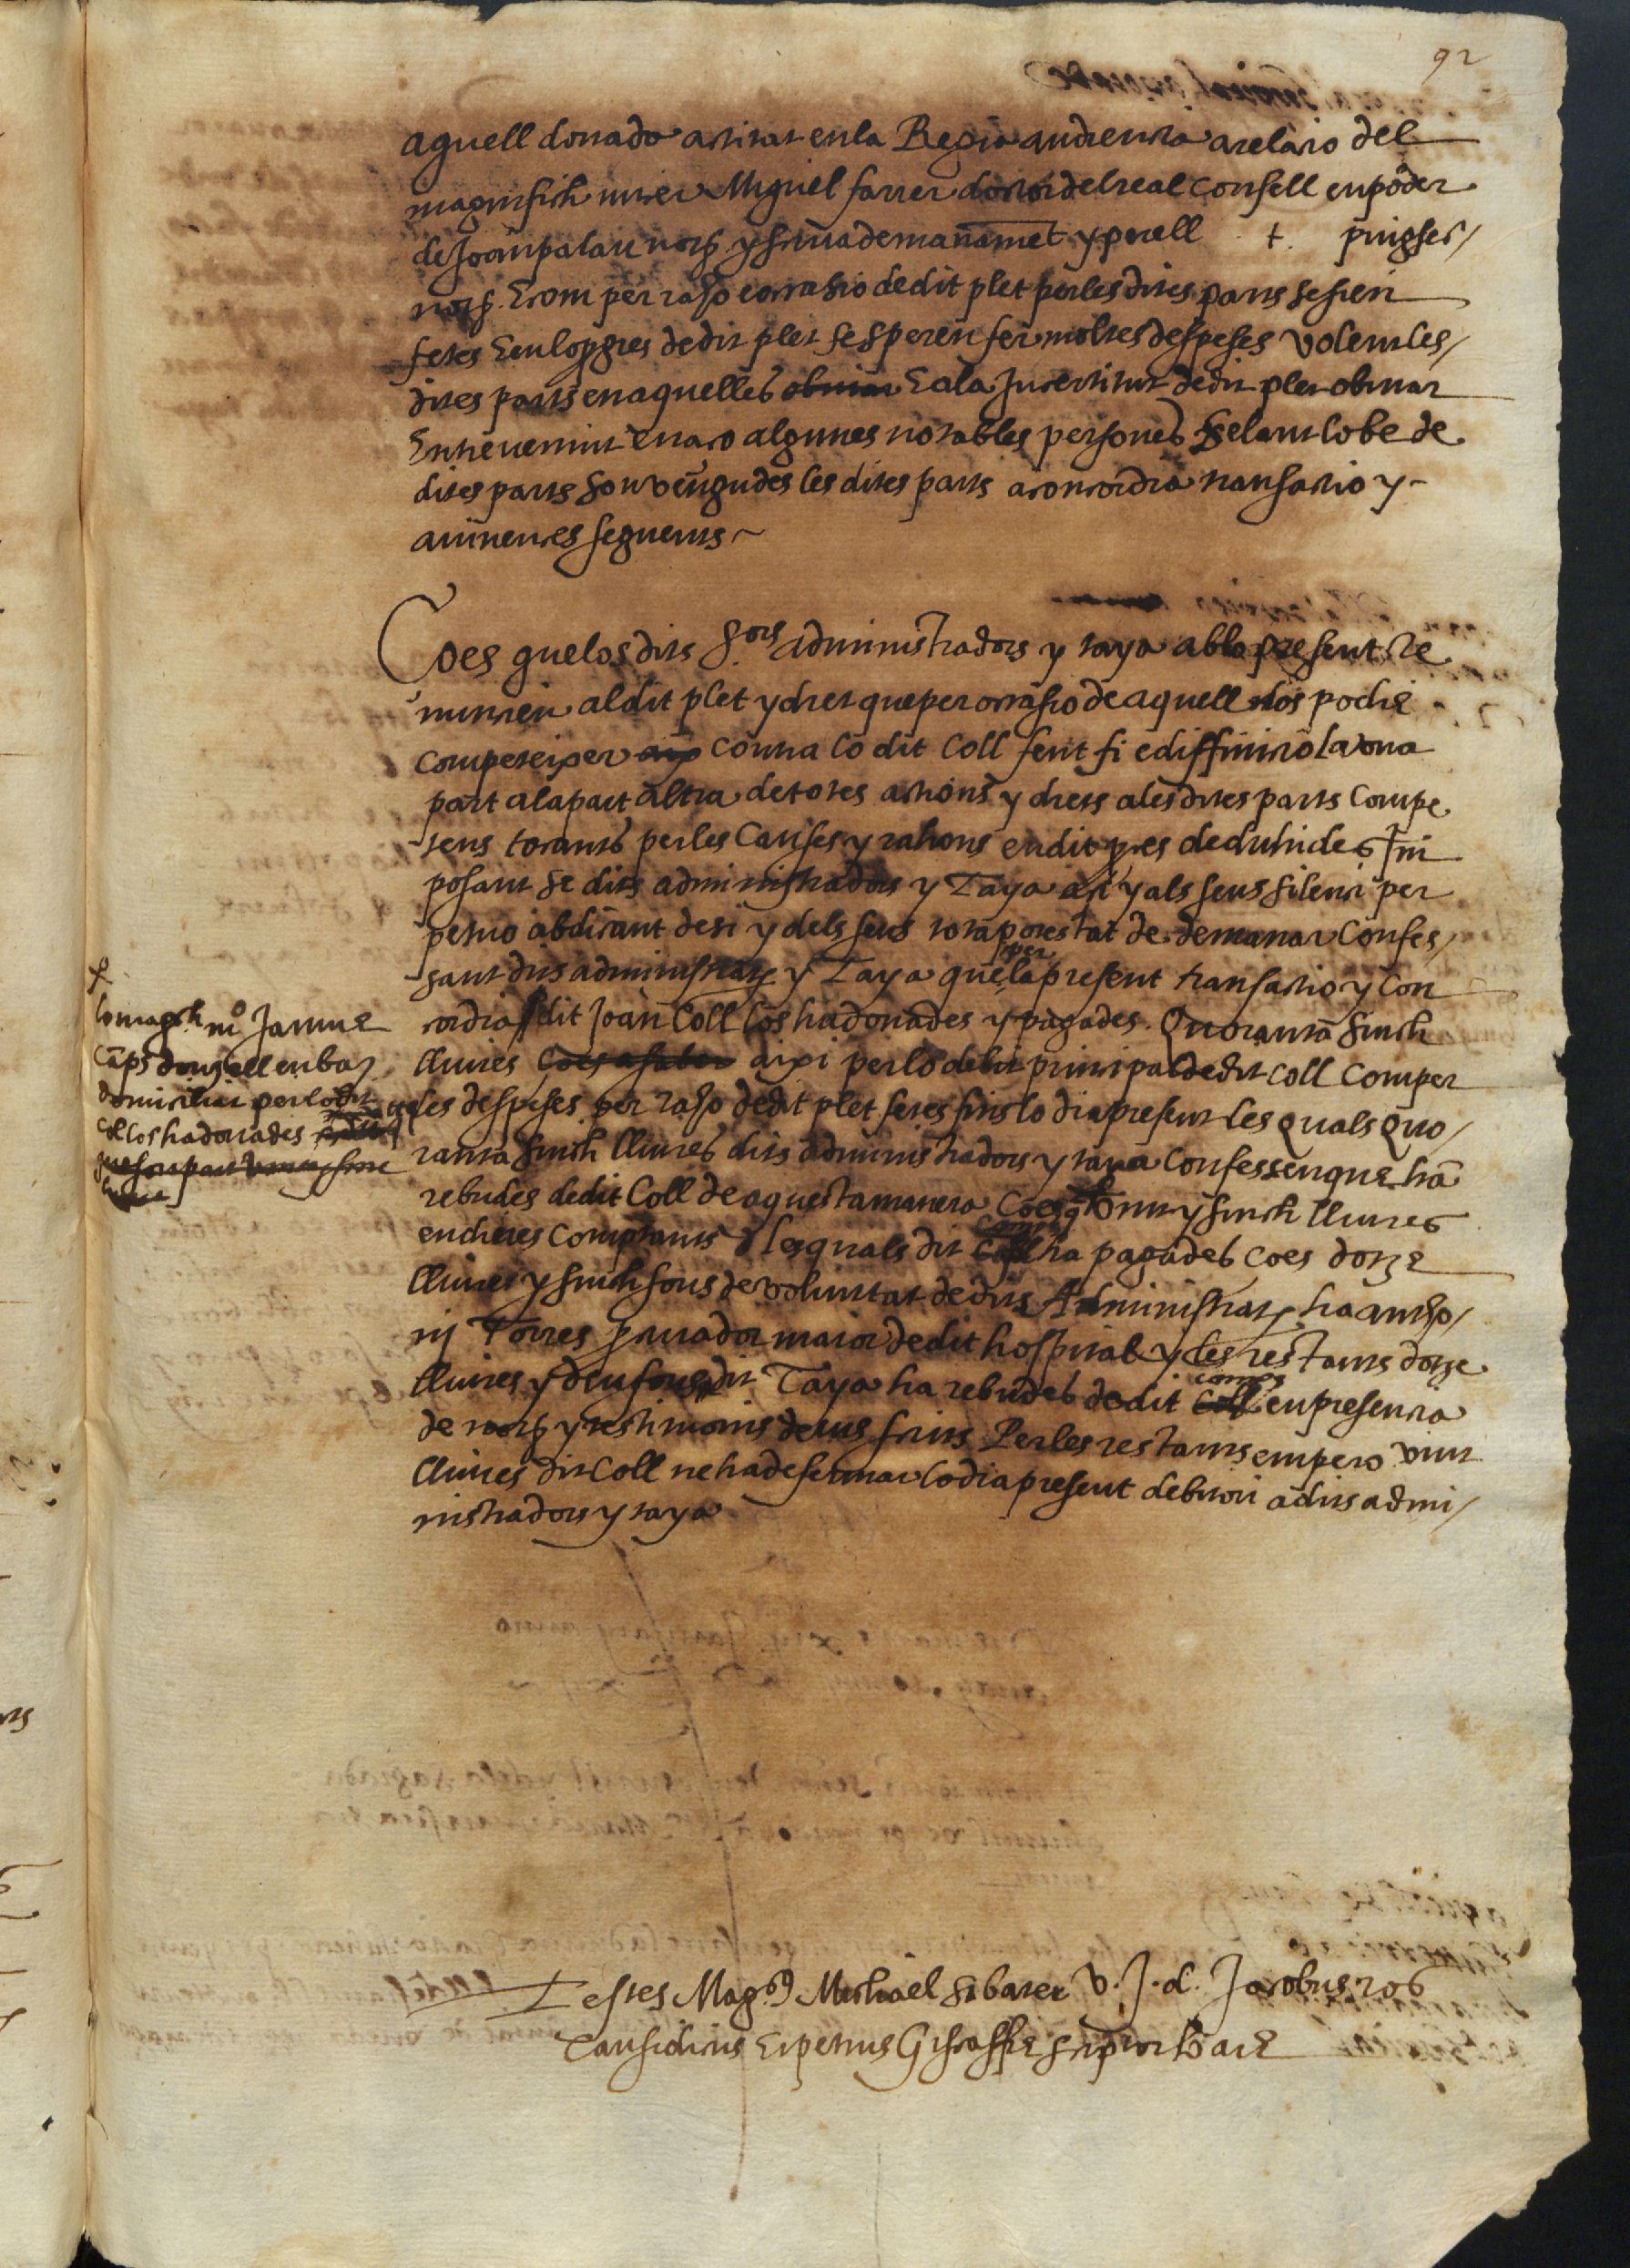 92
aquell donada actitat en la Regia audiencia a relacio del
magnifich micer Miquel farrer doctor del real consell en poder
de Joan palau not. y scriua de manament y per ell + puigser/
not. E com per raho e occasio de dit plet per les dites parts sesien
fetes E en lo pgres de dit plet se speren fer moltes despeses volent les/
dites parts en aquelles obuiar E a la Incertitut de dit plet obuiar
Entreuenint en aço algunes notables persones zelant lo be de
dites parts son vengudes les dites parts a concordia transactio y
auinences seguents
Çoes que los dits S.ors administradors y taya ab la present re
nuncien al dit plet y dret que per occasio de aquell los podie
competeixer aix contra lo dit Coll fent fi e diffinicio la vna
part a la part altra de totes actions y drets a les dites parts Compe
tens tocants per les Causes y rahons en dit pces deduhides Im
posant se dits administradors y Taya a si y als seus silenci per
petuo abdicant de si y dels seus tota potestat de demanar Confes/
sant dits administrats y Taya que per la present transactio y Con
cordia dit Joan Coll los ha donades y pagades Quoranta sinch
lliures Coes a saber aixi per lo debit principal de dit Coll Com per
les despeses per raho de dit plet fetes fins lo dia present les quals Quo/
ranta sinch lliures dits administradors y taya Confessen que ha
rebudes de dit Coll de aquesta manera Coes q vint y sinch lliures
en diners Comptants les quals dit Coll camps ha pagades Coes dotze
lliures y sinch sous de voluntat de dits Administrats ha antho/
nj Torres pcurador maior de dit hospital y les restants dotze
lliures y deu sous dit Taya ha rebudes de dit Coll camps en presencia
de not. y testimonis deius scrits Per les restants empero vint
lliures dit Coll ne ha de fermar lo dia present debitori a dits admi/
nistradors y taya
+
lo magch mo Jaume
Camps donzell en bar
domiciliat per lo dit
Coll los ha donades
Testes Magcs Michael sabater V. J. d. Jacobus ros
Causidicus E petrus Giraffe scriptor bare